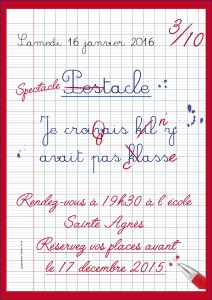 3/10
Samedi 16 janvier 2016
Spectacle Pestacle
Je croyais kil n y
avait pas klasse
Rendez-vous à 19h30 à l'école
Sainte Agnès
Réservez vos places avant
le 17 décembre 2015